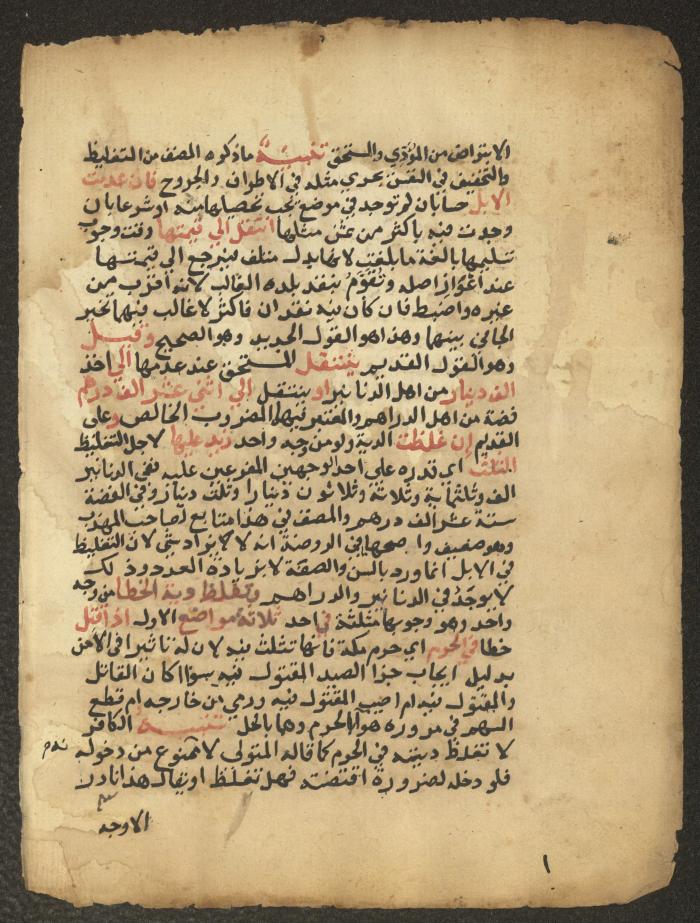 الا بتراض من المؤدي والمستحق تنبيه ما ذكره المصنف من التغليظ
والتخفيف في النفس يجري مثله في الاطراف والجروح فان عدمت
الابل حسا بان لم توجد في موضع يجب تحصيلها منه او شرعا بان
وجدت فيه باكثر من ثمن مثلها انتقل الي قيمتها وقت وجوب
تسليمها بالغة ما بلغت لانها بدل متلف فيرجع الي قيمتها
عند اعواز اصله وتقوم بنقد بلده الغالب لانه اقرب من
غيره واضبط فان كان فيه نقدان فاكثر لا غالب فيهما تخير
الجاني بينهما وهذا هو القول الجديد وهو الصحيح وقيل
وهو القول القديم ينتقل المستحق عند عدمها الي اخذ
الف دينار من اهل الدنانير او ينتقل الي اثني عشر الف درهم
فضة من اهل الدراهم والمعتبر فيهما المضروب الخالص وعلى
القديم ان غلظت الدية ولو من وجه واحد زيد عليها لاجل التغليظ
الثلث اي قدره على احد الوجهين المفرعين عليه ففي الدنانير
الف وثلثماية وثلاثة وثلاثون دينارا وثلث دينار وفي الفضة
ستة عشر الف درهم والمصنف في هذا متابع لصاحب المهذب
وهو ضعيف واصحهما في الروضة انه لا يزاد شي لان التغليظ
في الابل انما ورد بالسن والصفة لا بزيادة العدد وذلك
لا يوجد في الدنانير والدراهم وتغلظ دية الخطا من وجه
واحد وهو وجوبها مثلثة في احد ثلاثة مواضع الاول اذا قتل
خطا في الحرم اي حرم مكة فانها تثلث فيه لان له تاثيرا في الامن
بدليل ايجاب جزا الصيد المقتول فيه سواء كان القاتل
والمقتول فيه ام اصيب المقتول فيه ورمي من خارجه ام قطع
السهم في مروره هوا الحرم وهما بالحل تنبيه الكافر
لا تغلظ ديته في الحرم كما قاله المتولي لانه ممنوع من دخوله
فلو دخله لضرورة اقتضته فهل تغلظ او يقال هذا نادر
الاوجه
١